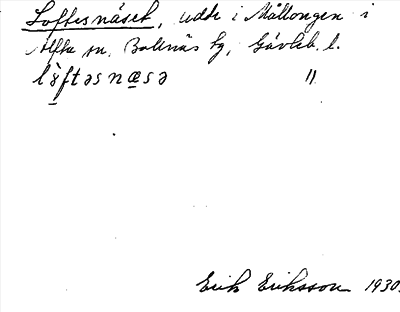 Loftesnäset, udde i Mållongen i
Alfta sn, Bollnäs tg, Gävleb. l.
lὸ̱ftəsnæ̱sə "
Erik Eriksson 1930.